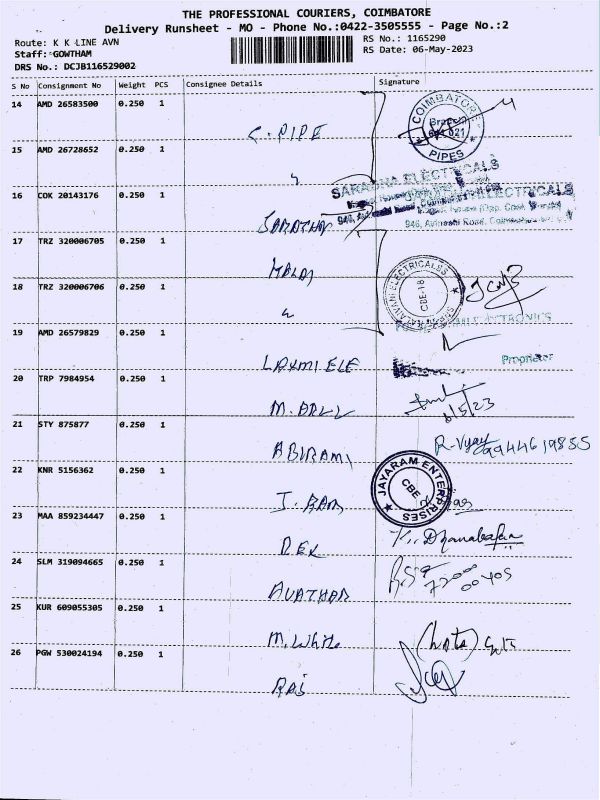 THE PROFESSIONAL COURIERS, COIMBATORE
Delivery Runsheet - MO - Phone No.:0422-3505555 - Page No.:2
Route: K K LINE AVN
RS No.: 1165290
Staff: GOWTHAM
RS Date: 06-May-2023
DRS No.: DCJB116529002
S No Consignment No Weight PCS Consignee Details Signature
14 AMD 26583500 0.250 1
COIMBATORE
Branch
641 021
PIPES
C. PIPE
15 AMD 26728652 0.250 1
SARADHA ELECTRICALS
16 COK 20143176 0.250 1
946, Avinashi Road,
SARATHA
17 TRZ 320006705 0.250 1
ELECTRICALSS
CBE-18
18 TRZ 320006706 0.250 1
19 AMD 26579829 0.250 1
Proprietor
LAXMI ELE
20 TRP 7984954 0.250 1
6/5/23
21 STY 875877 0.250 1
ABIRAMI
R-Vijay
9944619855
22 KNR 5156362 0.250 1
JAYARAM ENTERPRISES
CBE
J. RAM
23 MAA 859234447 0.250 1
K. Dhanabalan
24 SLM 319094665 0.250 1
AVATHAR
25 KUR 609055305 0.250 1
26 PGW 530024194 0.250 1
RAJ